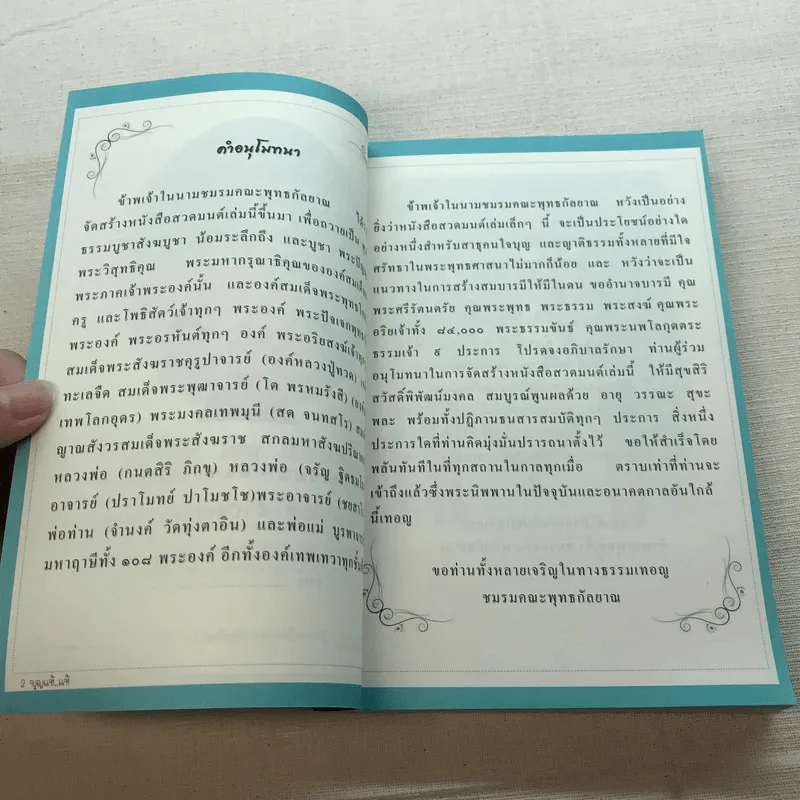 คำอนุโมทนา
ข้าพเจ้าในนามชมรมคณะพุทธกัลยาณ ได้
จัดสร้างหนังสือสวดมนต์เล่มนี้ขึ้นมา เพื่อถวายเป็น
ธรรมบูชาสังฆบูชา น้อมระลึกถึง และบูชา
พระวิสุทธิคุณ พระมหากรุณาธิคุณขององค์สมเด็จ
พระภาคเจ้าพระองค์นั้น และองค์สมเด็จพระพุทธ
ครู และโพธิสัตว์เจ้าทุกๆ พระองค์ พระปัจเจกพุทธ
พระองค์ พระอรหันต์ทุกๆ องค์ พระอริยสงฆ์เจ้า
สมเด็จพระสังฆราชคุรูปาจารย์ (องค์หลวงปู่ทวด)
ทะเลจืด สมเด็จพระพุฒาจารย์ (โต พรหมรังสี) (องค์
เทพโลกอุดร) พระมงคลเทพมุนี (สด จนทสโร)
ญาณสังวรสมเด็จพระสังฆราช สกลมหาสังฆปริณา
หลวงพ่อ (กนตสิริ ภิกขุ) หลวงพ่อ (จรัญ ฐิตธมโ
อาจารย์ (ปราโมทย์ ปาโมชโช)พระอาจารย์ (ชยสาโ
พ่อท่าน (จำนงค์ วัดทุ่งตาอิน) และพ่อแม่ บูรพาจา
มหาฤาษีทั้ง ๑๐๘ พระองค์ อีกทั้งองค์เทพเทวาทุกชั้น
2 บุญแท้..แท้
ข้าพเจ้าในนามชมรมคณะพุทธกัลยาณ หวังเป็นอย่าง
ยิ่งว่าหนังสือสวดมนต์เล่มเล็กๆ นี้ จะเป็นประโยชน์อย่างใด
อย่างหนึ่งสำหรับสาธุคนใจบุญ และญาติธรรมทั้งหลายที่มีใจ
ศรัทธาในพระพุทธศาสนาไม่มากก็น้อย และ หวังว่าจะเป็น
แนวทางในการสร้างสมบารมีให้มีในตน ขออำนาจบารมี คุณ
พระศรีรัตนตรัย คุณพระพุทธ พระธรรม พระสงฆ์ คุณพระ
อริยเจ้าทั้ง ๘๔,๐๐๐ พระธรรมขันธ์ คุณพระนพโลกุตตระ
ธรรมเจ้า ๙ ประการ โปรดจงอภิบาลรักษา ท่านผู้ร่วม
อนุโมทนาในการจัดสร้างหนังสือสวดมนต์เล่มนี้ ให้มีสุขสิริ
สวัสดิ์พิพัฒน์มงคล สมบูรณ์พูนผลด้วย อายุ วรรณะ สุขะ
พละ พร้อมทั้งปฏิภานธนสารสมบัติทุกๆ ประการ สิ่งหนึ่ง
ประการใดที่ท่านคิดมุ่งมั่นปรารถนาตั้งไว้ ขอให้สำเร็จโดย
พลันทันทีในที่ทุกสถานในกาลทุกเมื่อ ตราบเท่าที่ท่านจะ
เข้าถึงแล้วซึ่งพระนิพพานในปัจจุบันและอนาคตกาลอันใกล้
นี้เทอญ
ขอท่านทั้งหลายเจริญในทางธรรมเทอญ
ชมรมคณะพุทธกัลยาณ